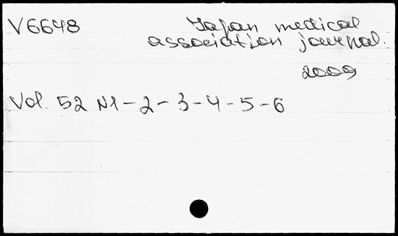 V6648 Japan medical
association journal.
2009
Vol. 52 N1-2-3-4-5-6